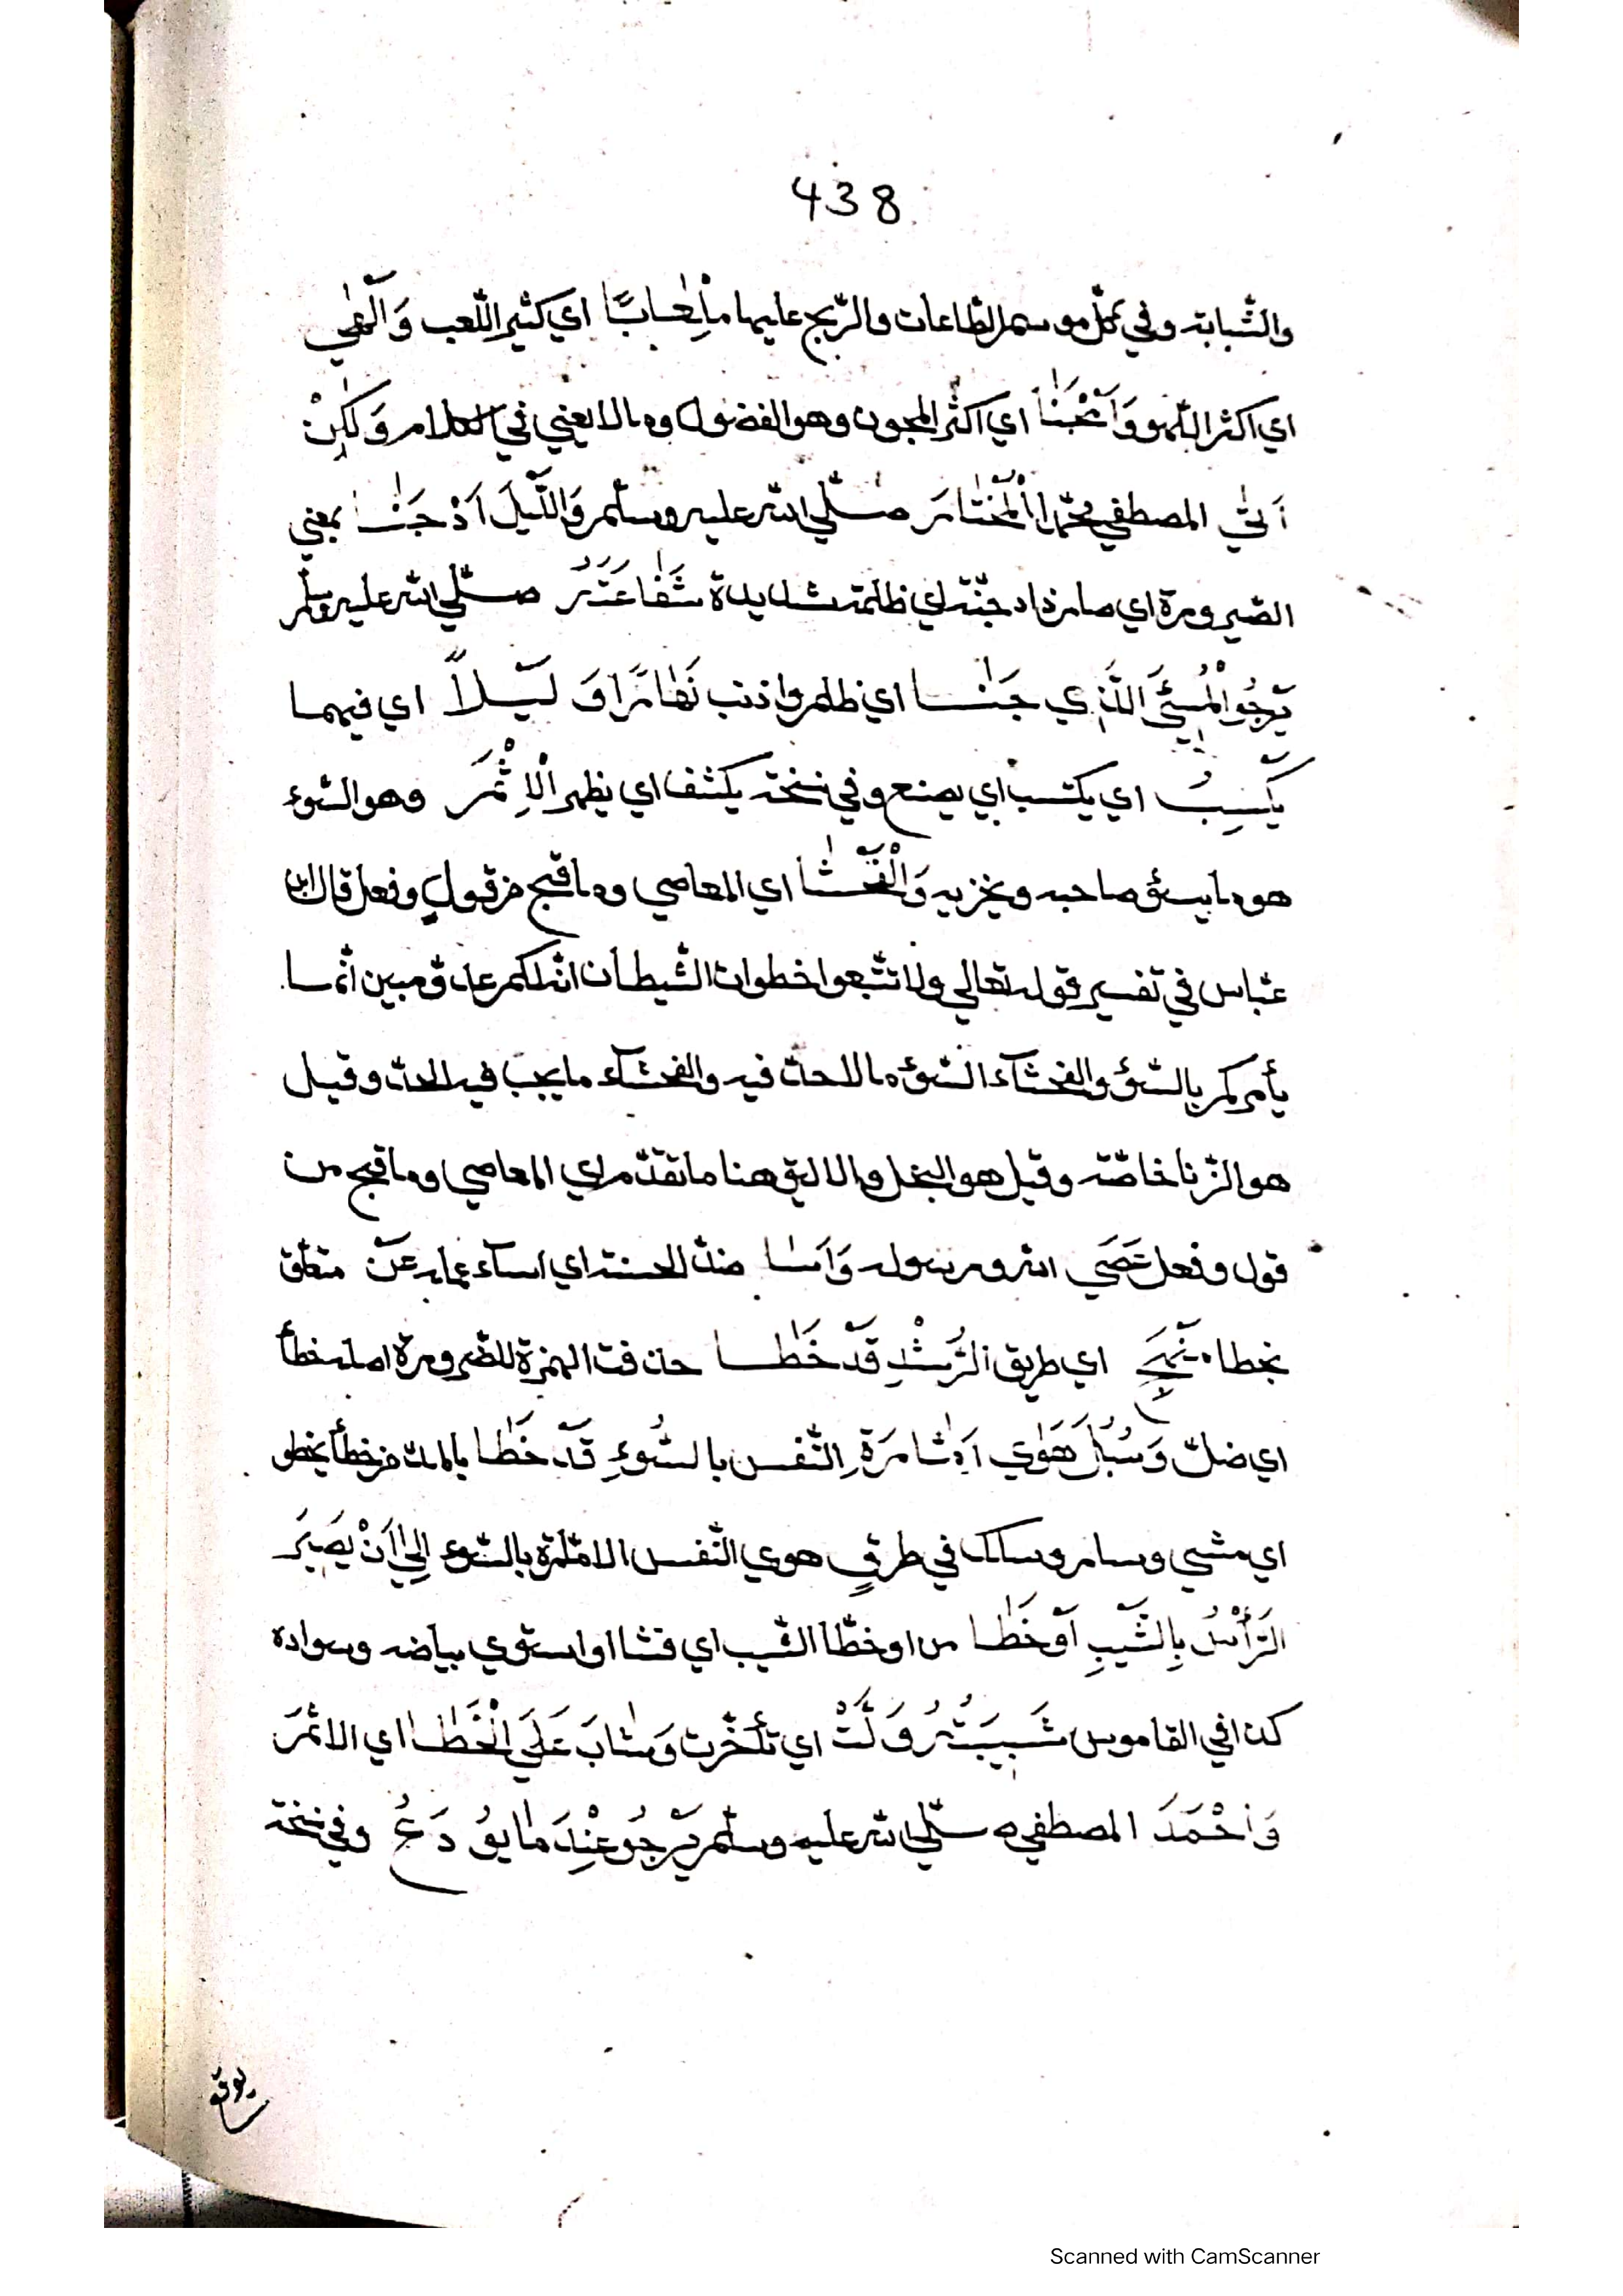 438
والشّبابة وفي محلّ موسم الطّاعات والرّبح عليها مِلْعَابًا اي كثير اللّعب وَآلْهٰي
اي اكثر اللّهو وَآمْجَنَا اي اكثر المجون وهو الفضول وما لا يعني في الكلام وَلٰكِنْ
اَتٰي المصطفي محمّدا الْمُخْتَارَ صلّي الله عليه وسلّم وَاللَّيْلَ اَدْجَنَا بمعني
الصّيرورة اي صار ذا دجنّة اي ظلمة شديدة شَفَاعَتَهُ صلّي الله عليه وسلّم
يَرْجُو الْمُسِيْئُ الَّذِي جَنٰا اي ظلم واذنب نَهَارًا وَ لَيْلاً اي فيهما
يَكْسِبُ اي يكتسب اي يصنع وفي نسخة يكشف اي يظهر الْاِثْمَ وهو السّوء
هو ما يسئ صاحبه ويخزيه وَالْفَحْشَا اي المعاصي وما قبح من قول وفعل قال ابن
عبّاس في تفسير قوله تعالي ولا تتّبعوا خطوات الشّيطان انّه لكم عدوّ مبين انّما
يأمركم بالسّوء والفحشاء السّوء ما لا حدّ فيه والفحشاء ما يجب فيه الحدّ وقيل
هو الزّنا خاصّة وقيل هو البخل والاليق هنا ما تقدّم اي المعاصي وما قبح من
قول وفعل عَصَي الله ورسوله وَاَسَا ضدّ الحسنة اي اساء عمله عَنْ متعلّق
بخطا نَهْجِ اي طريق الرُّشْدِ قَدْ خَطَا حذفت الهمزة للضّرورة اصله خطأ
اي ضلّ وَسُبْلَ هَوٰي اَمَّارَةِ النّفس بالسُّوءِ قَدْ خَطَا بالمدّ من خطأ يخطو
اي مشي وسار وسلك في طرق هوي النّفس الامّارة بالسّوء اِلٰي اَنْ يَصِيْرَ
الرَّأْسُ بِالشَّيْبِ آوْخَطَا من اوخطّا الشّيب اي فشا او استوي بياضه وسواده
كذا في القاموس شَبِيْبَتُهُ وَلَّتْ اي تأخّرت وَشَابَ عَلَي الْخَطَا اي الاثم
وَاَحْمَدَ المصطفي صلّي الله عليه وسلّم يَرْجُو عِنْدَ مَا يُوْدَعُ وفي نسخة
Scanned with CamScanner